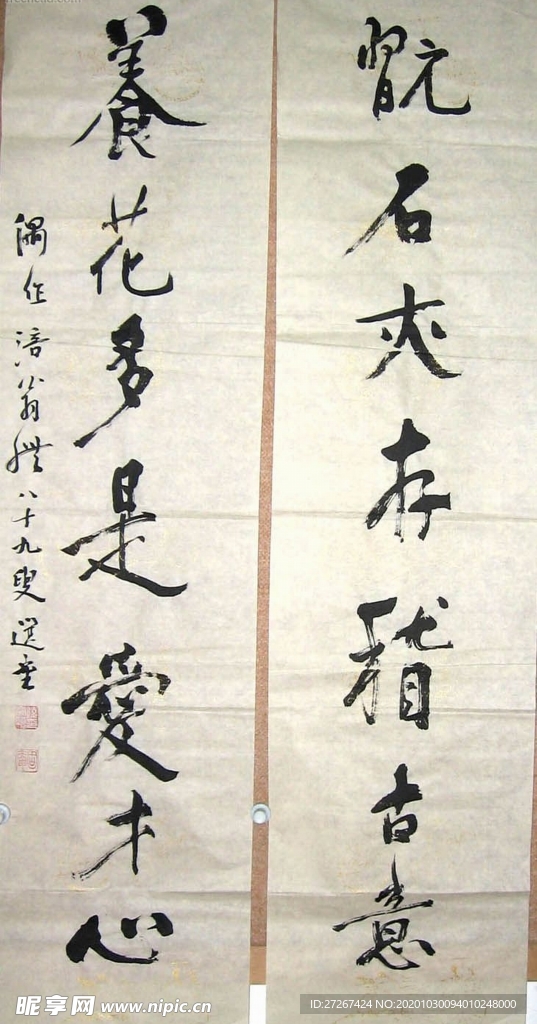 翫石爽存稽古意
養花多是愛才心
偶作 涪翁體 八十九叟選堂
昵享网 www.nipic.cn
ID:27267424 NO:20201030094010248000